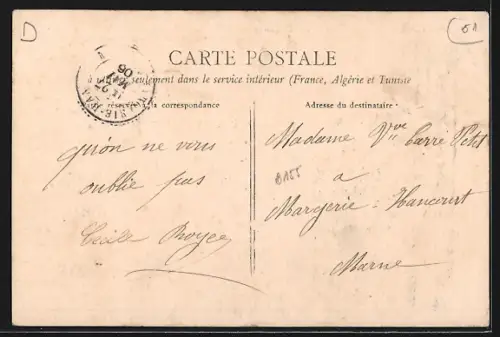 D
51
CARTE POSTALE
seulement dans le service intérieur (France, Algérie et Tunisie
réservé à la correspondance
Adresse du destinataire
qu'on ne vous
oublie pas
Cécile
Madame Vve Carré Petit
a
Margerie-Hancourt
Marne